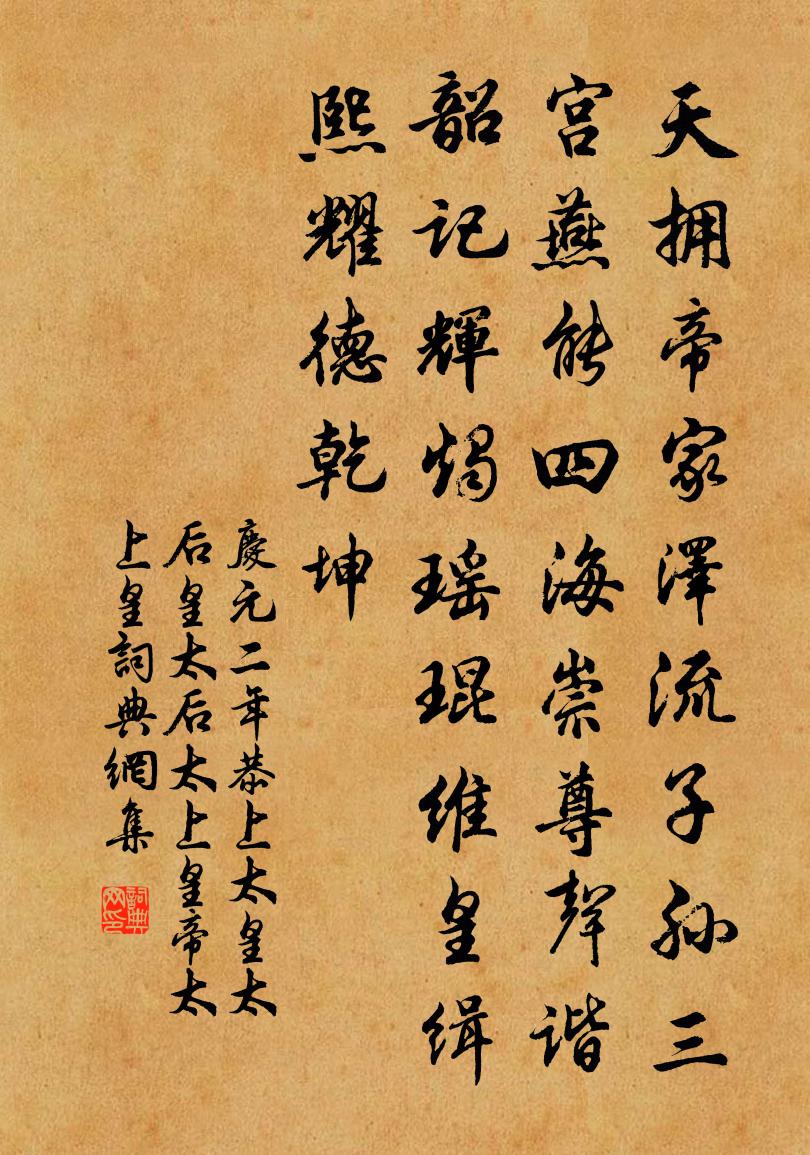 天拥帝家澤流子孙三
宫燕能四海崇尊聲谐
韶记輝燭瑶琨維皇缉
熙耀德乾坤
慶元二年恭上太皇太
后皇太后太上皇帝太
上皇詞典網集
詞典網印